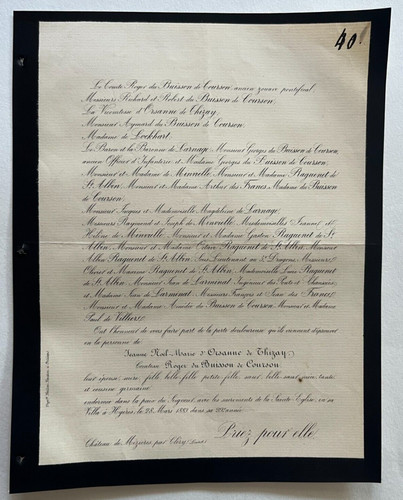 40
Le Comte Roger du Buisson de Courson, ancien zouave pontifical
Messieurs Richard et Robert du Buisson de Courson,
La Vicomtesse d'Orsanne de Thizay,
Monsieur Aymard du Buisson de Courson,
Madame de Lockhart,
Le Baron et la Baronne de Larnage, Monsieur Georges du Buisson de Courson,
ancien Officier d'Infanterie et Madame Georges du Buisson de Courson,
Monsieur et Madame de Minvielle, Monsieur et Madame Raguenet de
St Albin, Monsieur et Madame Arthur des Francs, Madame du Buisson
de Courson,
Monsieur Jacques et Mademoiselle Magdeleine de Larnage,
Messieurs Raymond et Joseph de Mesdemoiselles Jeanne et
de Monsieur et Madame Gaston Raguenet de St
Albin, Monsieur et Madame Octave Raguenet de St Albin, Monsieur
Raguenet de St Albin, Sous Lieutenant au Dragons, Messieurs
Olivier et Maxime Raguenet de St Albin, Mademoiselle Louise Raguenet
de St Albin, Monsieur Jean de Larminat, Ingénieur des Ponts et Chaussées
et Madame Jean de Larminat, Messieurs François et Jean des Francs,
Monsieur et Madame Amédée du Buisson de Courson, Monsieur et Madame
Paul de Villiers,
Ont l'honneur de vous faire part de la perte douloureuse qu'ils viennent d'éprouver
en la personne de
Jeanne Noël Marie d'Orsanne de Thizay
Comtesse Roger du Buisson de Courson,
leur épouse, mère, fille, belle-fille, petite-fille, sœur, belle-sœur, nièce, tante
et cousine germaine
endormie dans la paix du Seigneur, avec les sacrements de la Sainte Eglise, en sa
Villa à Hyères, le 28 Mars 1881 dans sa année.
Priez pour elle
Château de Mézières par Cléry (Loiret)